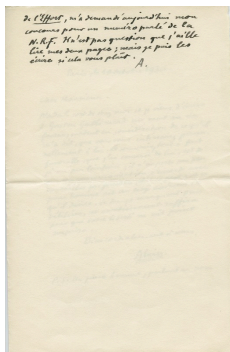 de l'Effort, m'a demandé aujourd'hui mon
concours pour un numéro parlé de la
N.R.F. Il n'est pas question que j'aille
lire mes deux pages ; mais je puis les
écrire si cela vous plaît.
A.